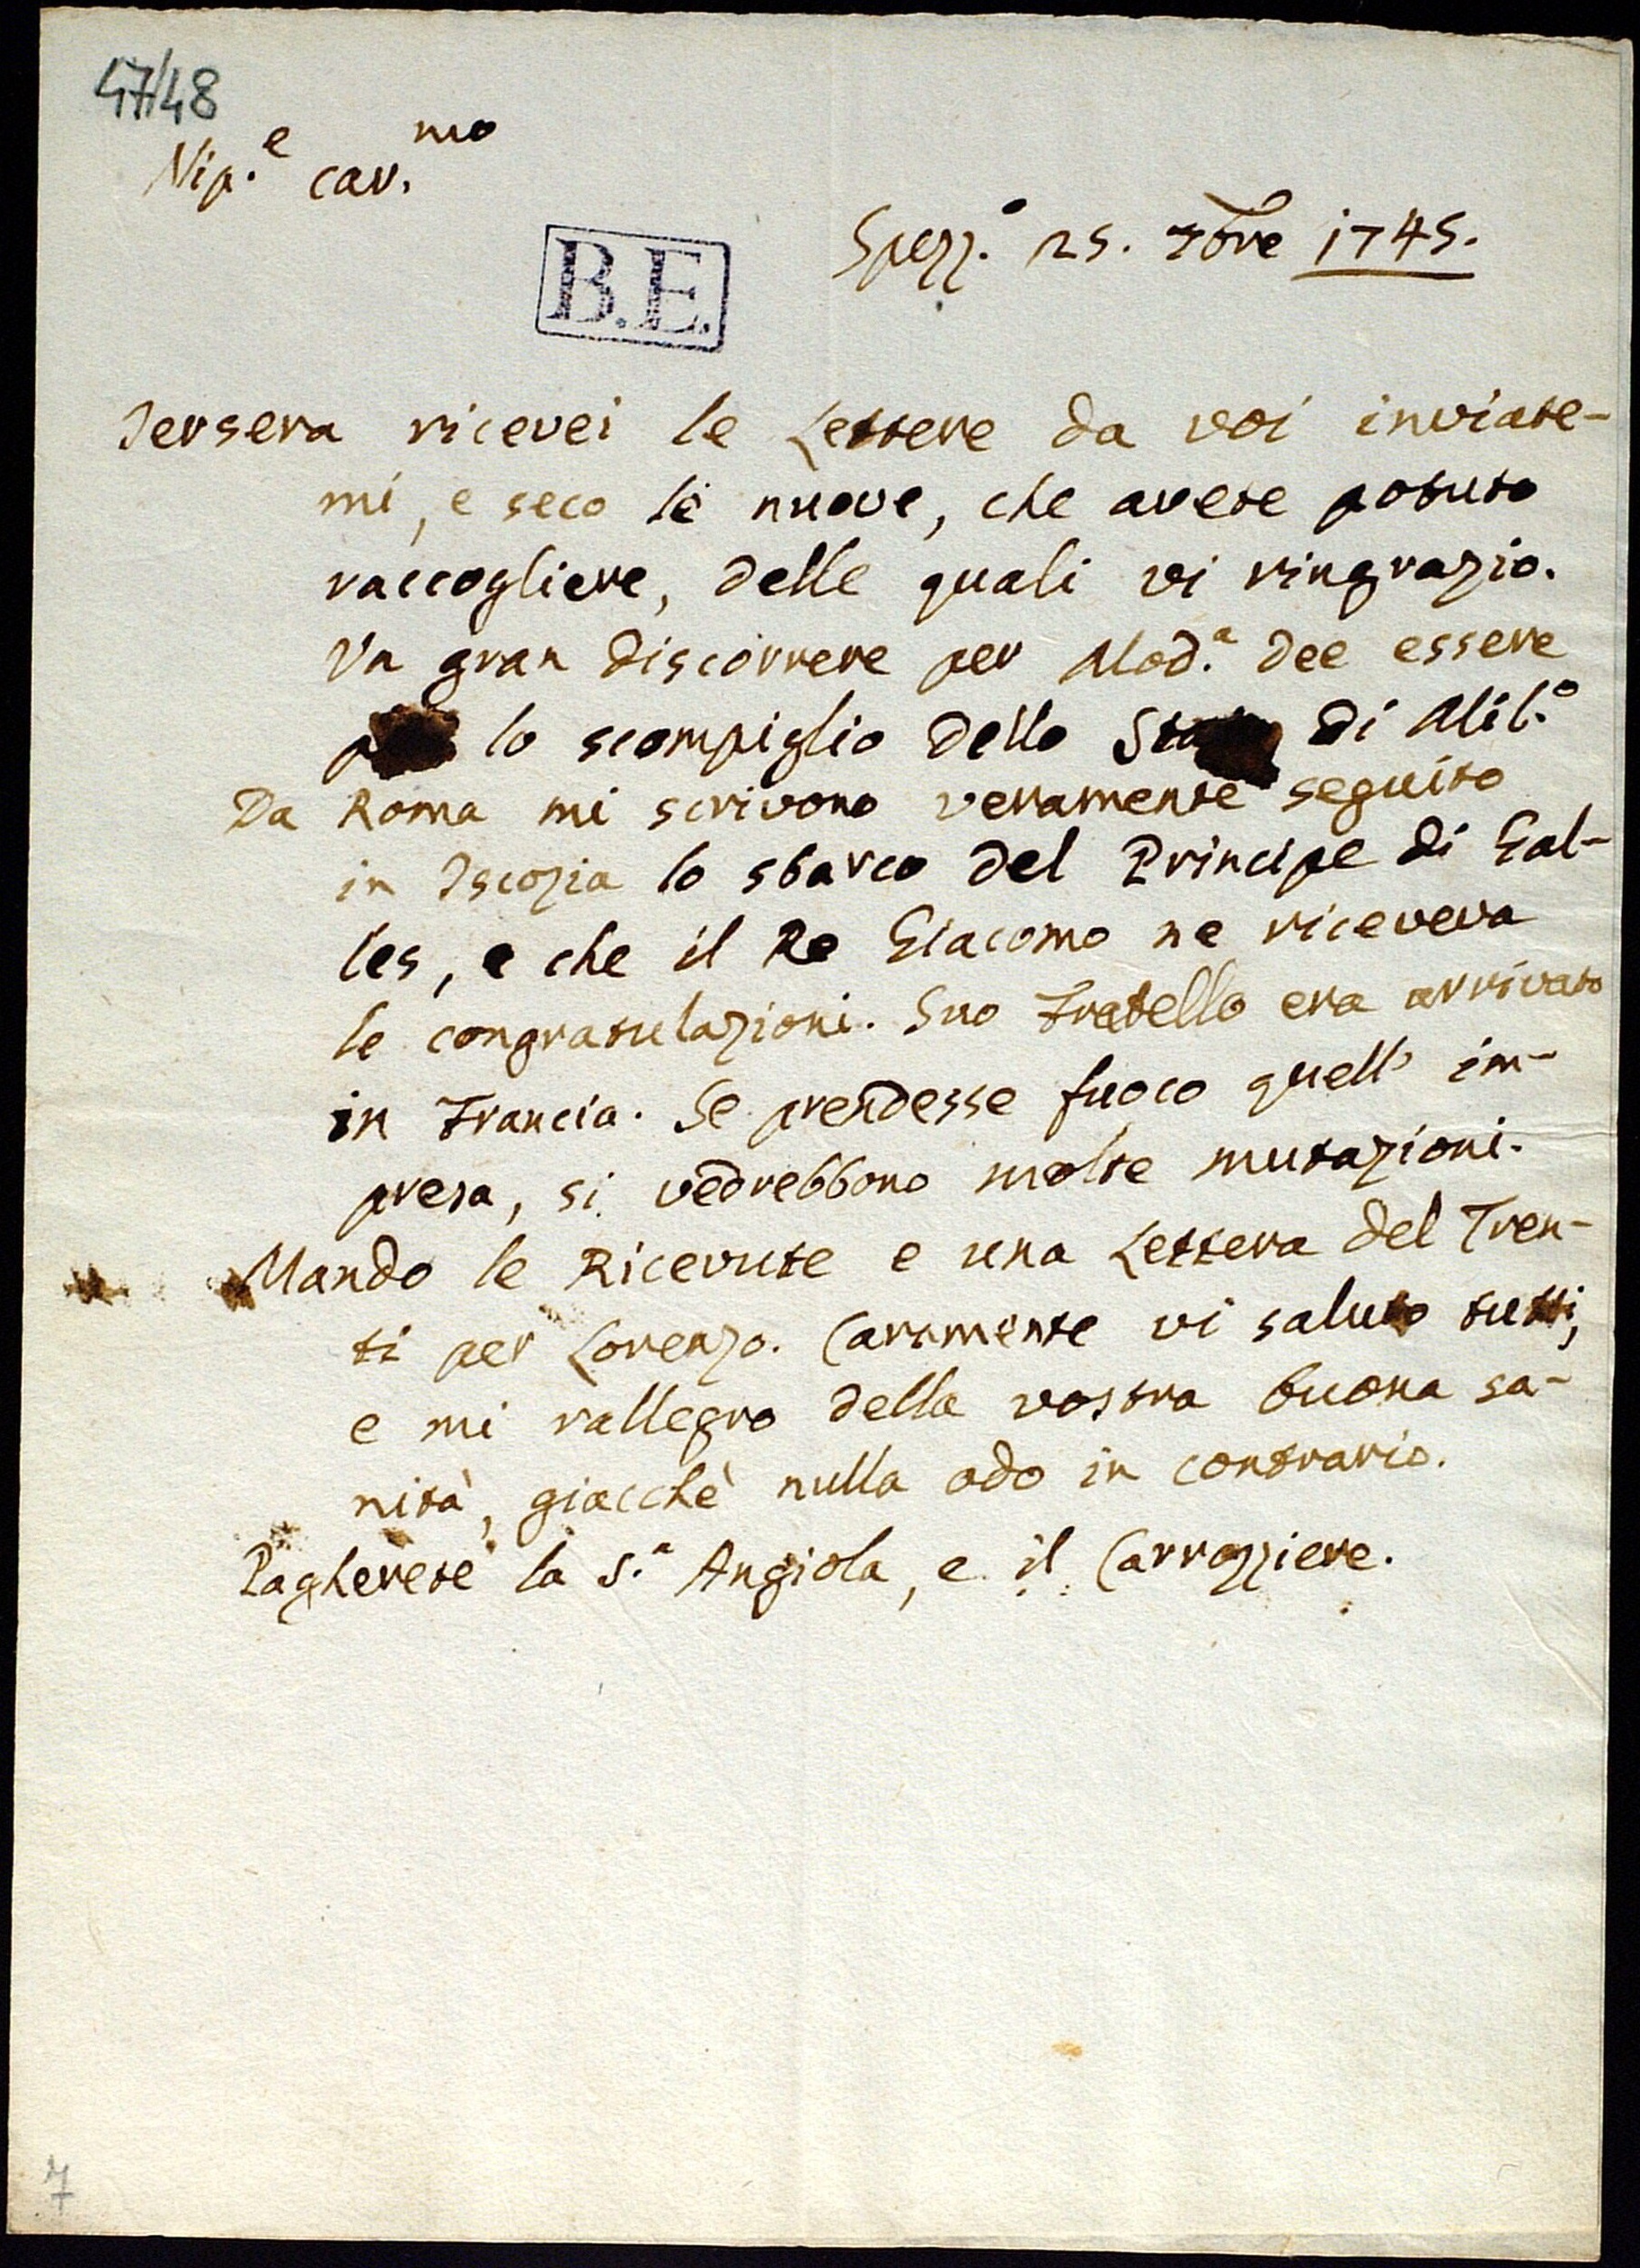 47/48
Nip.e car.mo
B.E.
Spezz.o 25. 7bre 1745.
Jersera ricevei le Lettere da voi inviate-
mi, e seco le nuove, che avete potuto
raccogliere, delle quali vi ringrazio.
Un gran discorrere per Mod.a dee essere
lo scompiglio dello Stato di Mil.o
Da Roma mi scrivono veramente seguito
in Iscozia lo sbarco del Principe di Gal-
les, e che il Re Giacomo ne riceveva
le congratulazioni. Suo Fratello era arrivato
in Francia. Se prendesse fuoco quell' im-
presa, si vedrebbono molte mutazioni.
Mando le Ricevute e una Lettera del Tren-
ti per Lorenzo. Caramente vi saluto tutti,
e mi rallegro della vostra buona sa-
nità, giacchè nulla odo in contrario.
Pagherete la S.a Angiola, e il Carrozziere.
7